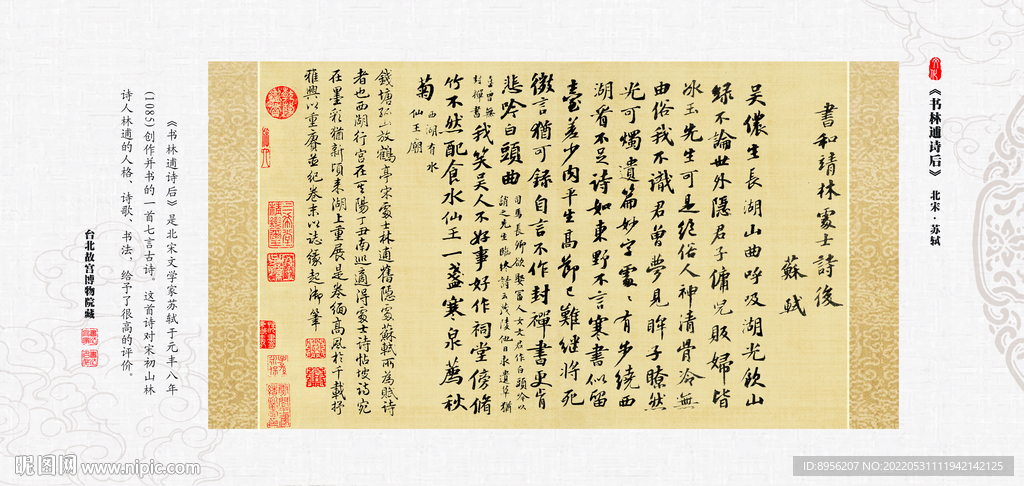 《书林逋诗后》 北宋·苏轼
書和靖林處士詩後
蘇軾
吴儂生長湖山曲呼吸湖光飲山
緑不論世外隱君子傭兒販婦皆
冰玉先生可是絕俗人神清骨冷無
由俗我不識君曾夢見眸子瞭然
光可燭遺篇妙字處〻有步繞西
湖看不足詩如東野不言寒書似留
臺差少肉平生高節已難繼將死
微言猶可録自言不作封禪書更肯
悲吟白頭曲
司馬長卿欲娶富人女文君作白頭吟以
誚之先生臨終詩云茂陵他日求遺草猶
喜曾無
封禪書
我笑吴人不好事好作祠堂傍脩
竹不然配食水仙王一盞寒泉薦秋
菊
西湖有水
仙王廟
錢塘孤山放鶴亭宋處士林逋舊隱處蘇軾所為賦詩
者也西湖行宮在其陽丁丑南巡適得處士詩帖坡詩宛
在墨彩猶新頃來湖上重展是卷緬高風於千載抒
雅興以重賡並紀卷末以誌緣起御筆
《书林逋诗后》是北宋文学家苏轼于元丰八年
(1085)创作并书的一首七言古诗。这首诗对宋初山林
诗人林逋的人格、诗歌、书法，给予了很高的评价。
台北故宫博物院藏
昵图网 www.nipic.com
ID:8956207 NO:20220531111942142125